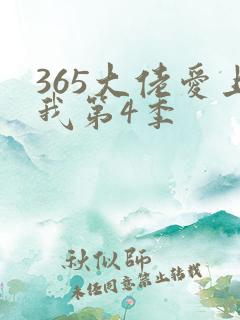 365大佬爱上
我第4季
秋似师
未经同意禁止转载